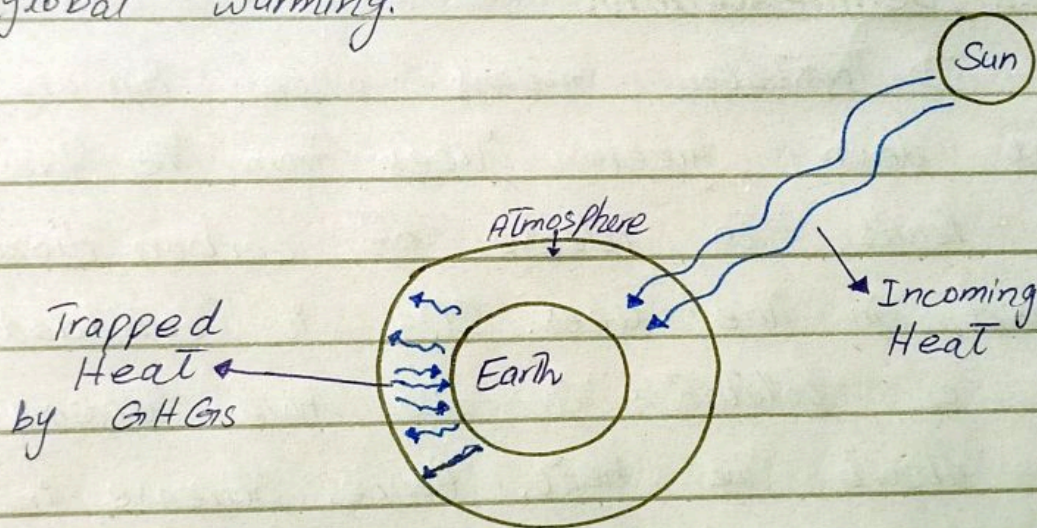 global warming.
Sun
Atmosphere
Incoming
Heat
Trapped
Heat
by GHGs
Earth